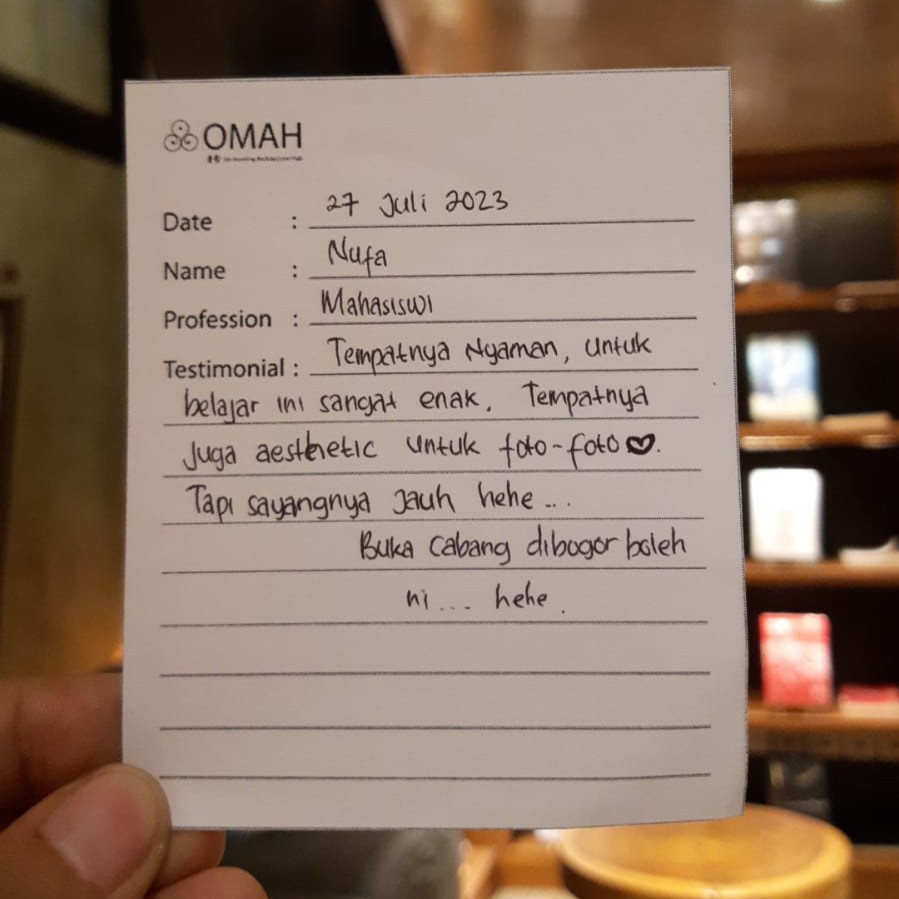 OMAH
Date : 27 Juli 2023
Name : Nufa
Profession : Mahasiswi
Testimonial : Tempatnya Nyaman, untuk
belajar ini sangat enak. Tempatnya
Juga aesthetic untuk foto-foto♥.
Tapi sayangnya Jauh hehe...
Buka Cabang dibogor boleh
ni... hehe.